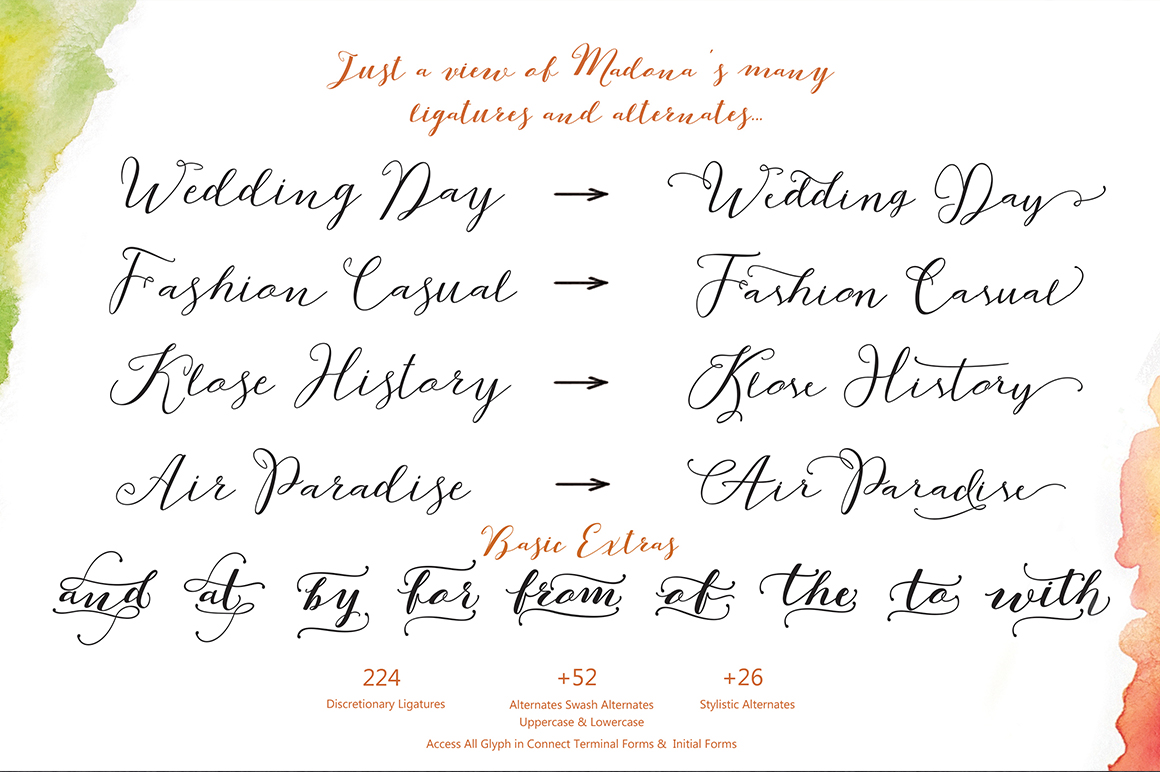 Just a view of Madona's many
ligatures and alternates...
Wedding Day → Wedding Day
Fashion Casual → Fashion Casual
Klose History → Klose History
Air Paradise → Air Paradise
Basic Extras
and at by for from of the to with
224 +52 +26
Discretionary Ligatures Alternates Swash Alternates Stylistic Alternates
Uppercase & Lowercase
Access All Glyph in Connect Terminal Forms & Initial Forms